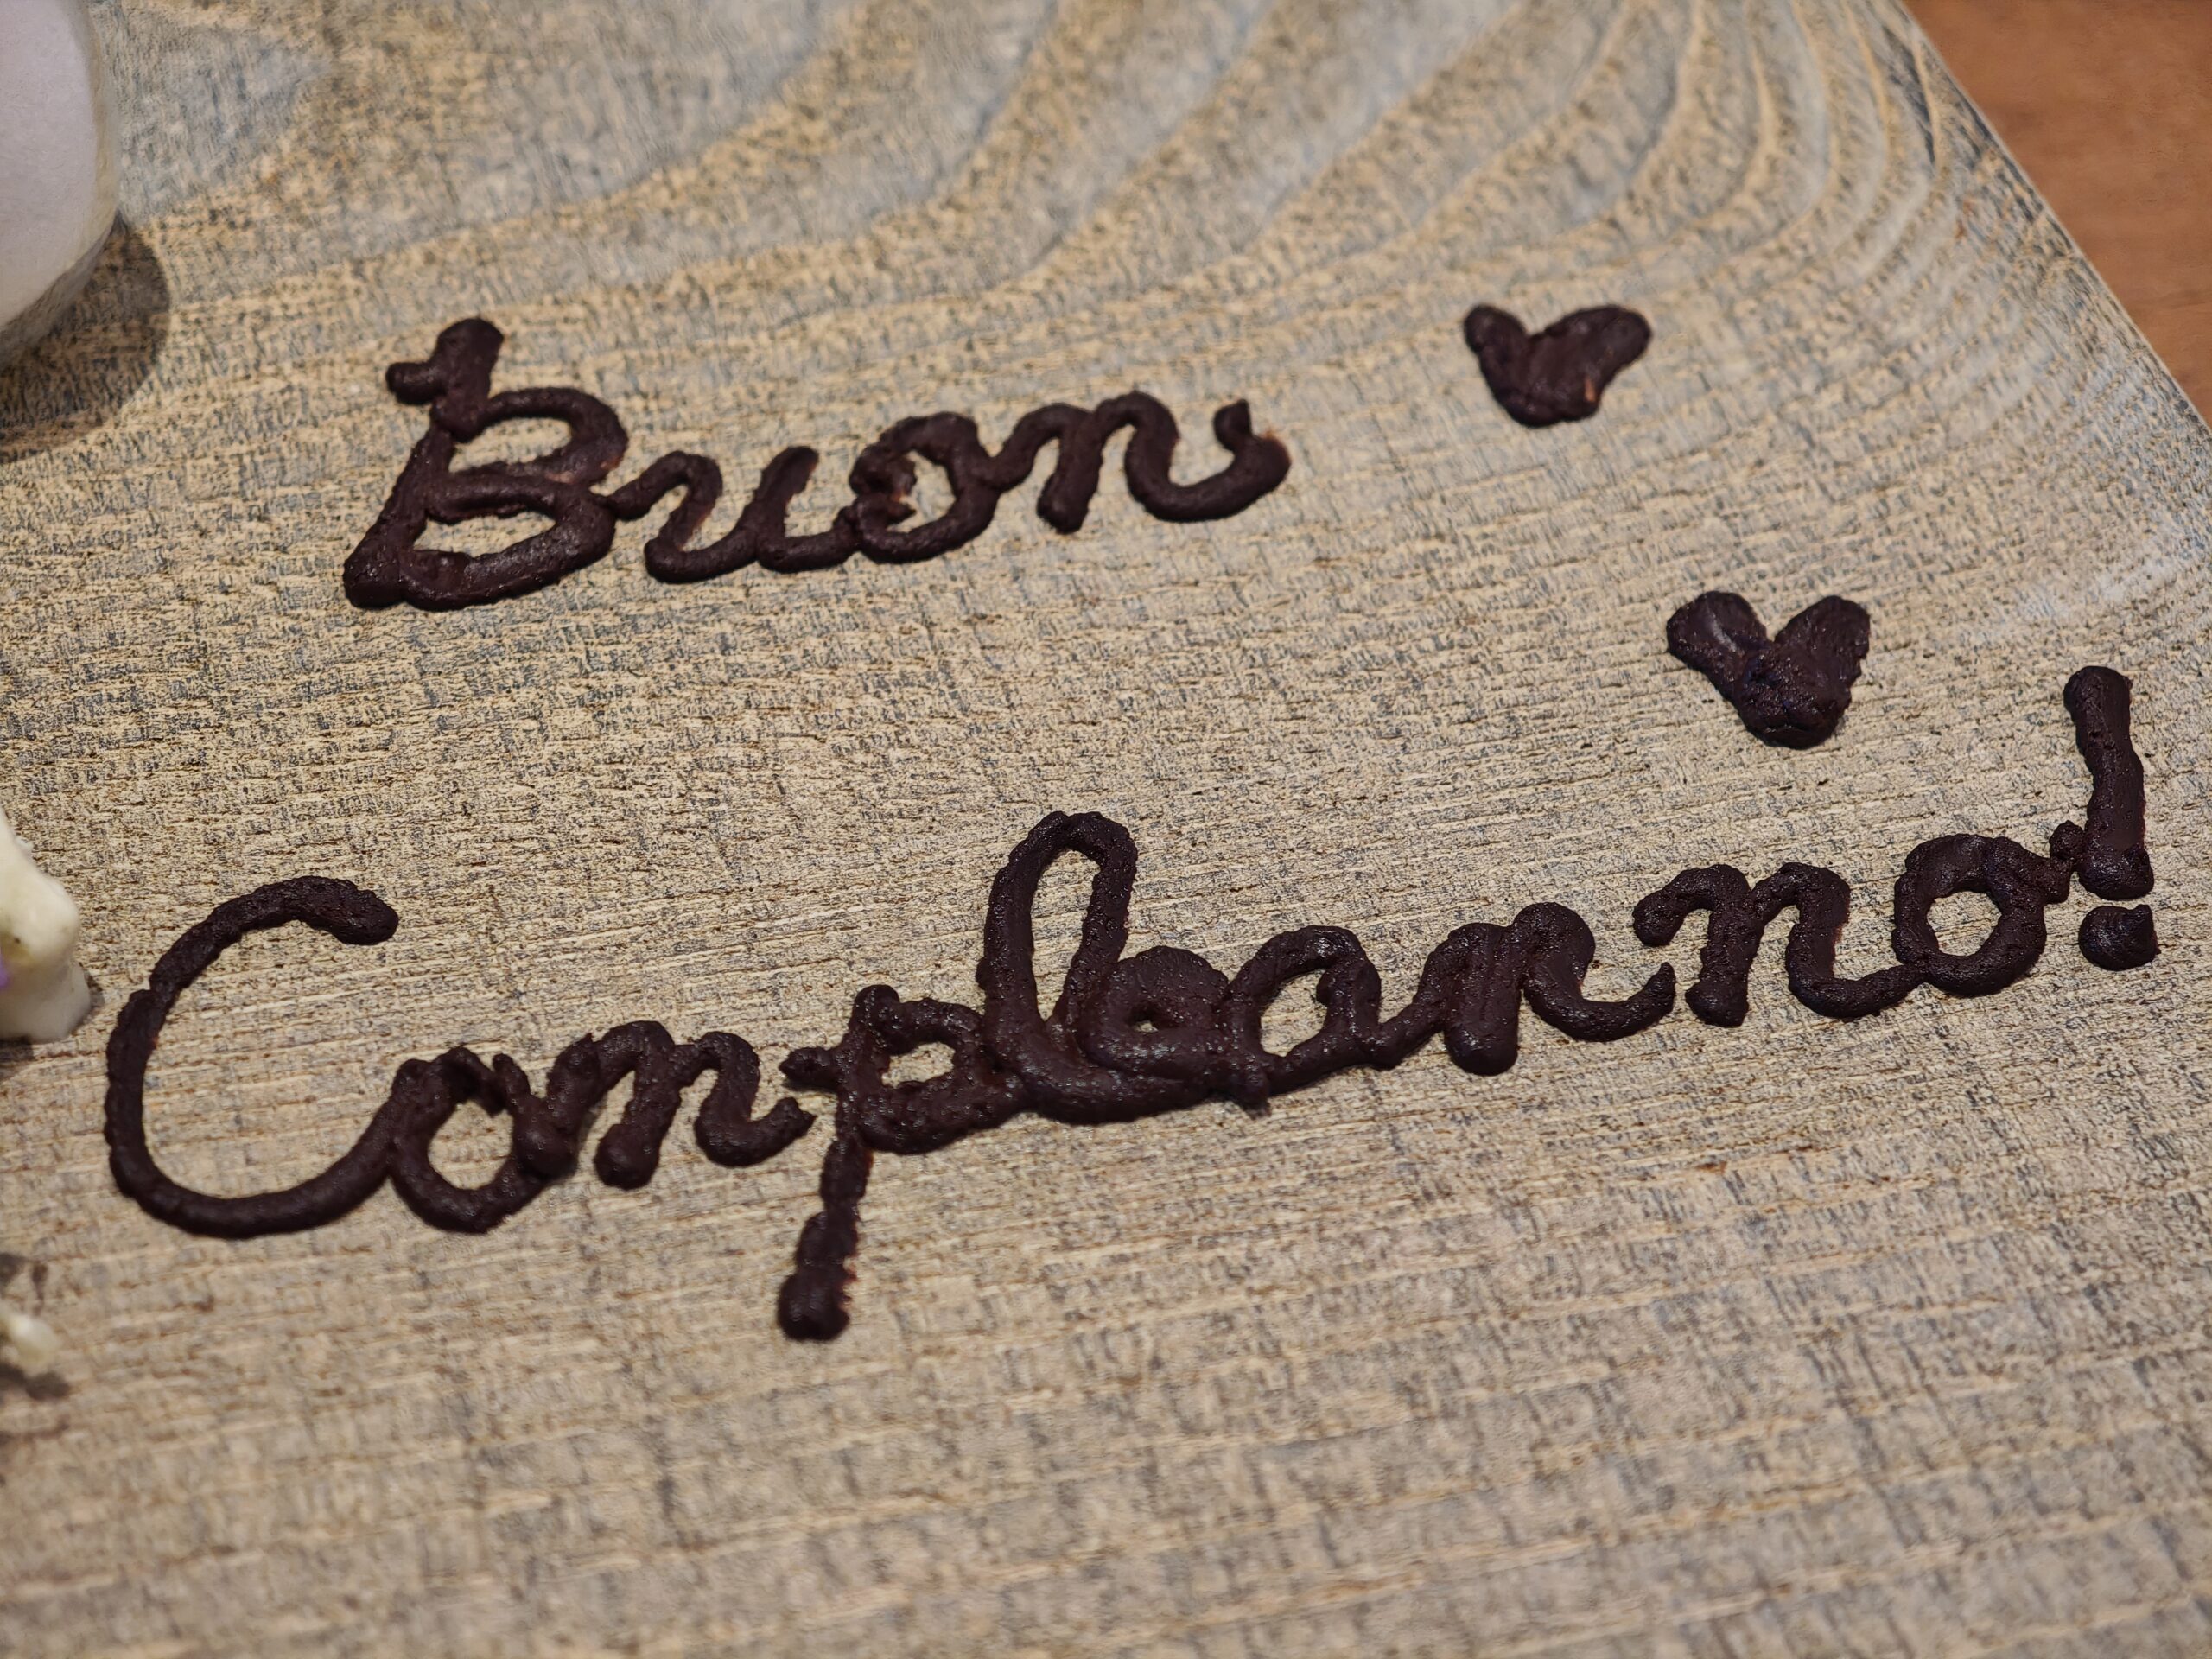 Buon
Compleanno!